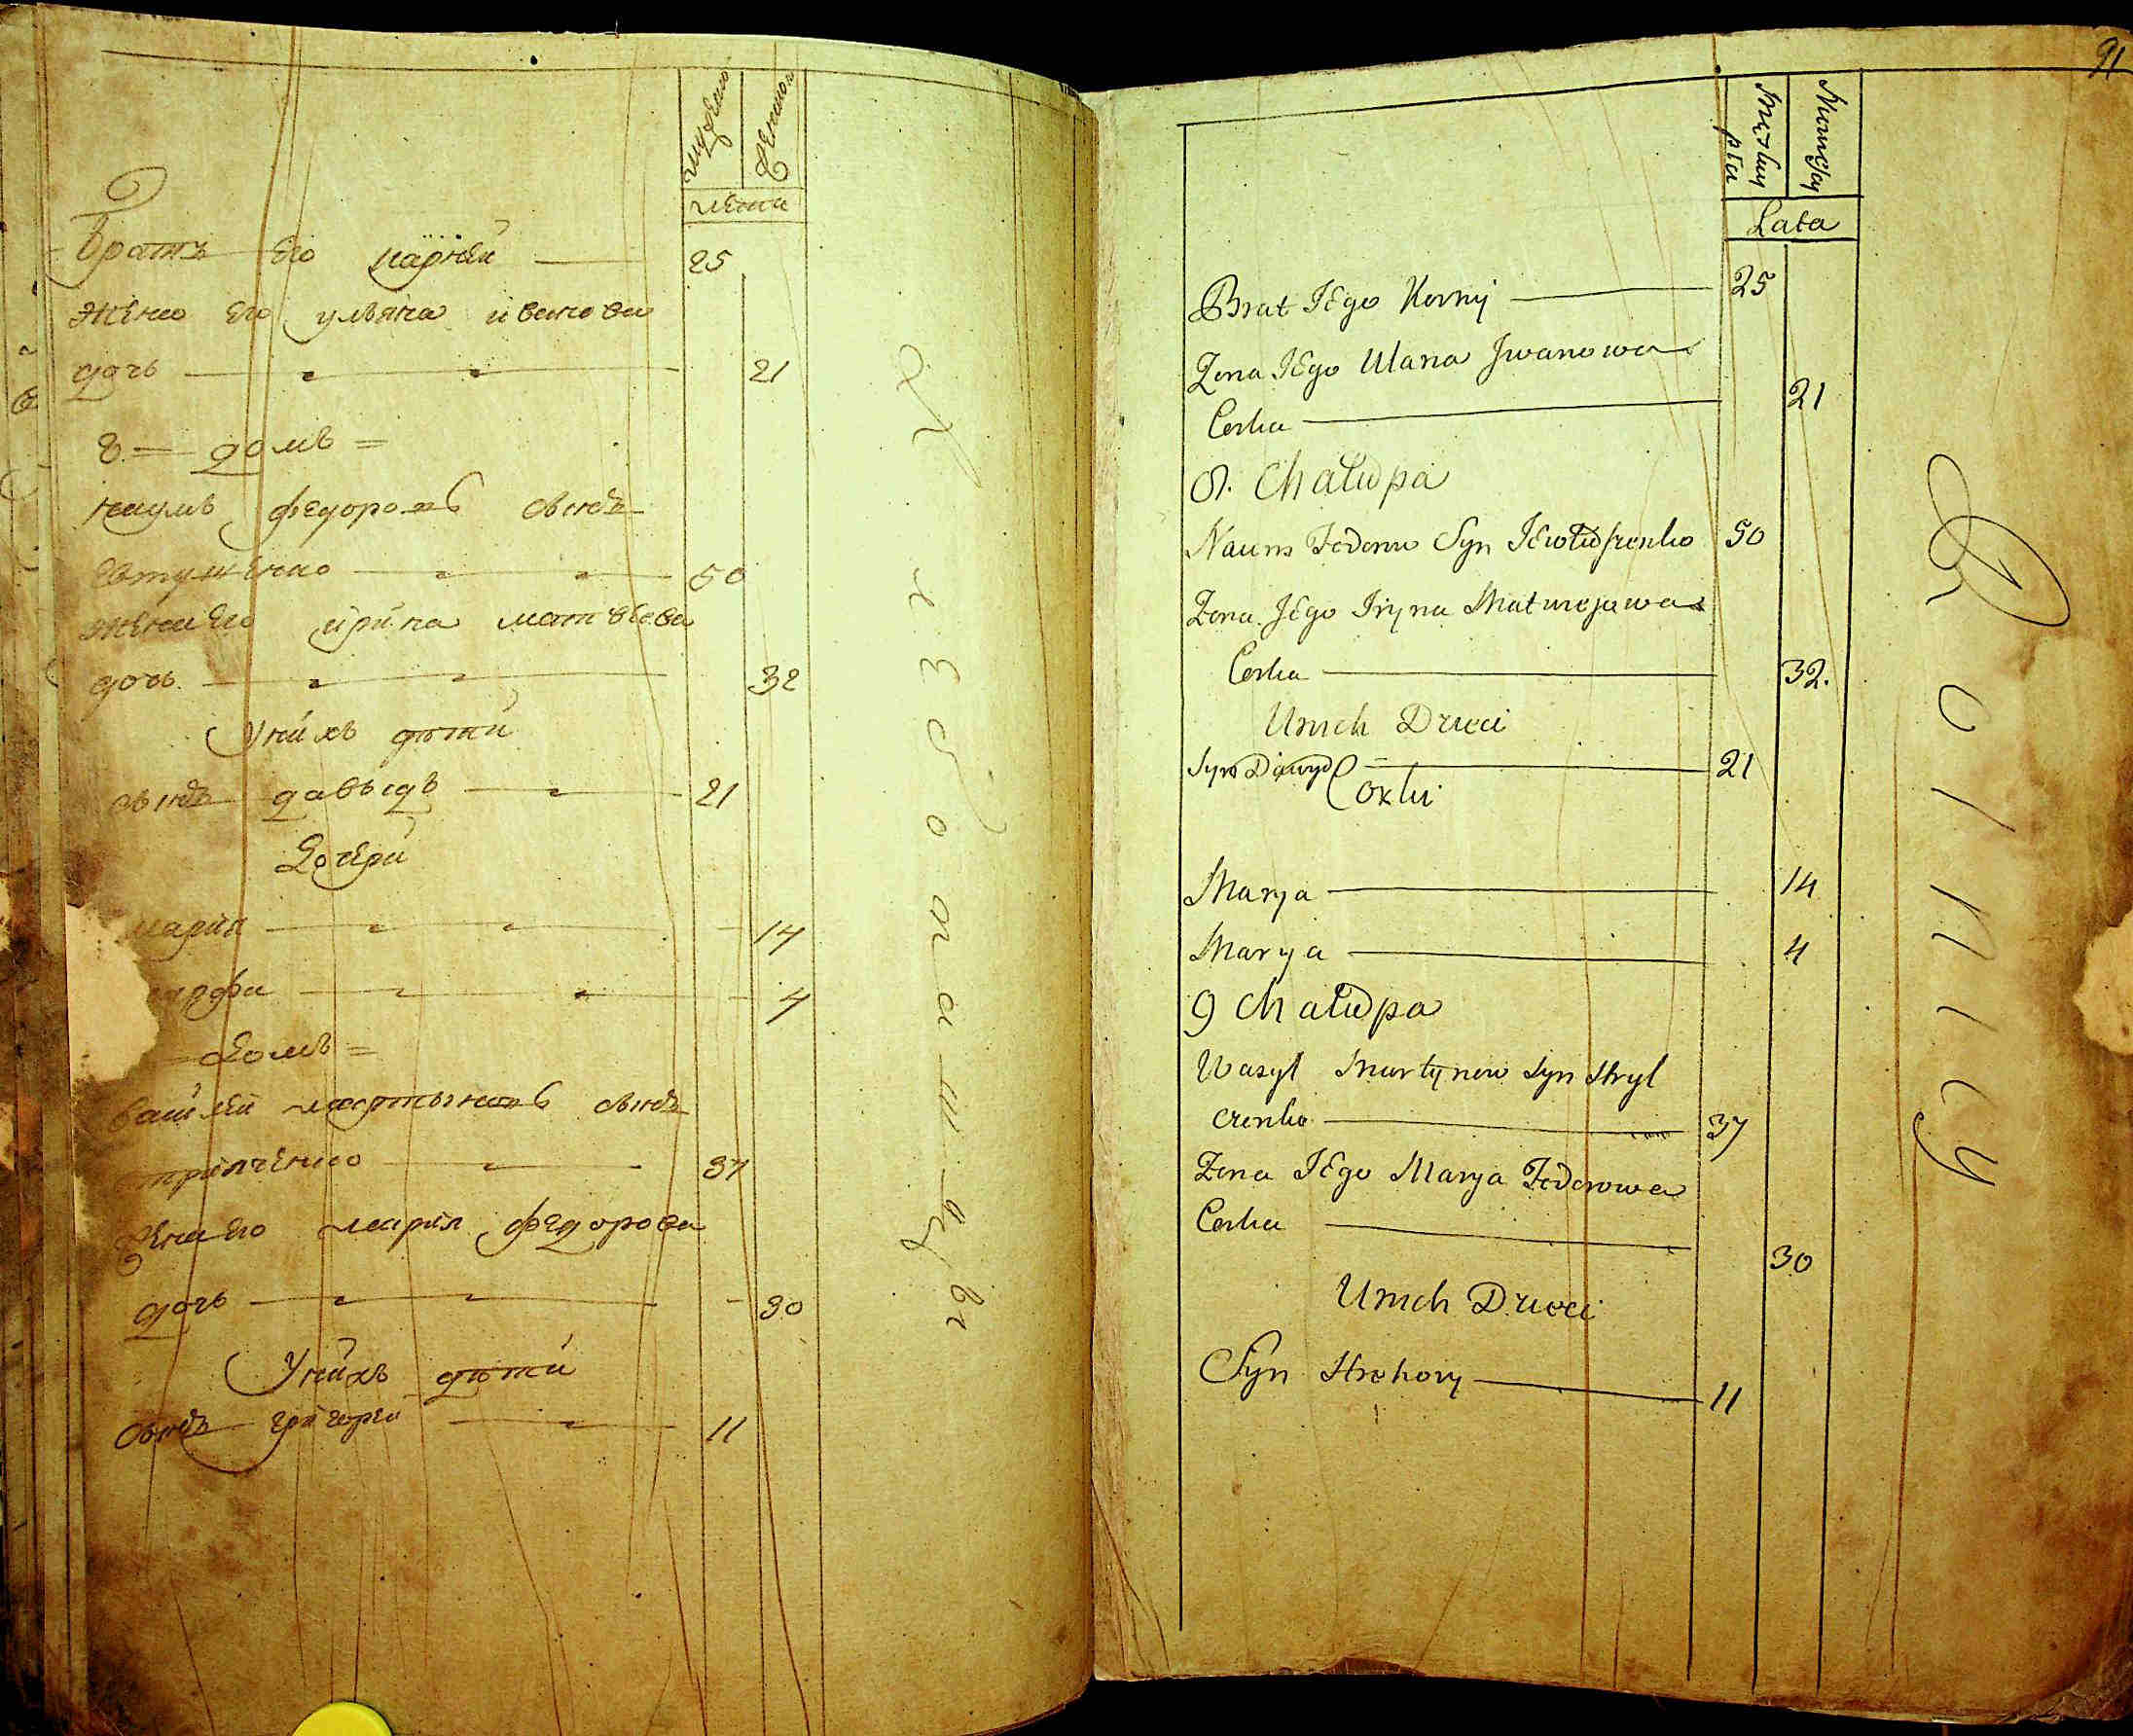 мужеско
женско
лета
Братъ его карней 25
жена его ульяна иванова
дочь 21
8 домъ
наумъ федоровъ сынъ
евтушенко 50
жена его ирина матвеева
дочь 32
У нихъ дети
сынъ давыдъ 21
Дочери
мария 14
марфа 4
домъ
василий мартыновъ сынъ
стрилченко 37
жена его мария федорова
дочь 30
У нихъ дети
сынъ григорей 11
91
Męzkiy płci
Lata
Brat JEgo Kornij 25
Zona JEgo Ulana Jwanowa
Corka 21
8. Chałupa
Naum Fedorow Syn JEwtuszenko 50
Zona JEgo Iryna Matwejowa
Corka 32.
U nich Dzieci
Syn Dawyd 21
Corki
Marya 14
Marya 4
9 Chałupa
Wasyl Martynow Syn Stryl
czenko 37
Zona JEgo Marya Fedorowa
Corka 30
U nich Dzieci
Syn Hrehory 11
Rolnicy